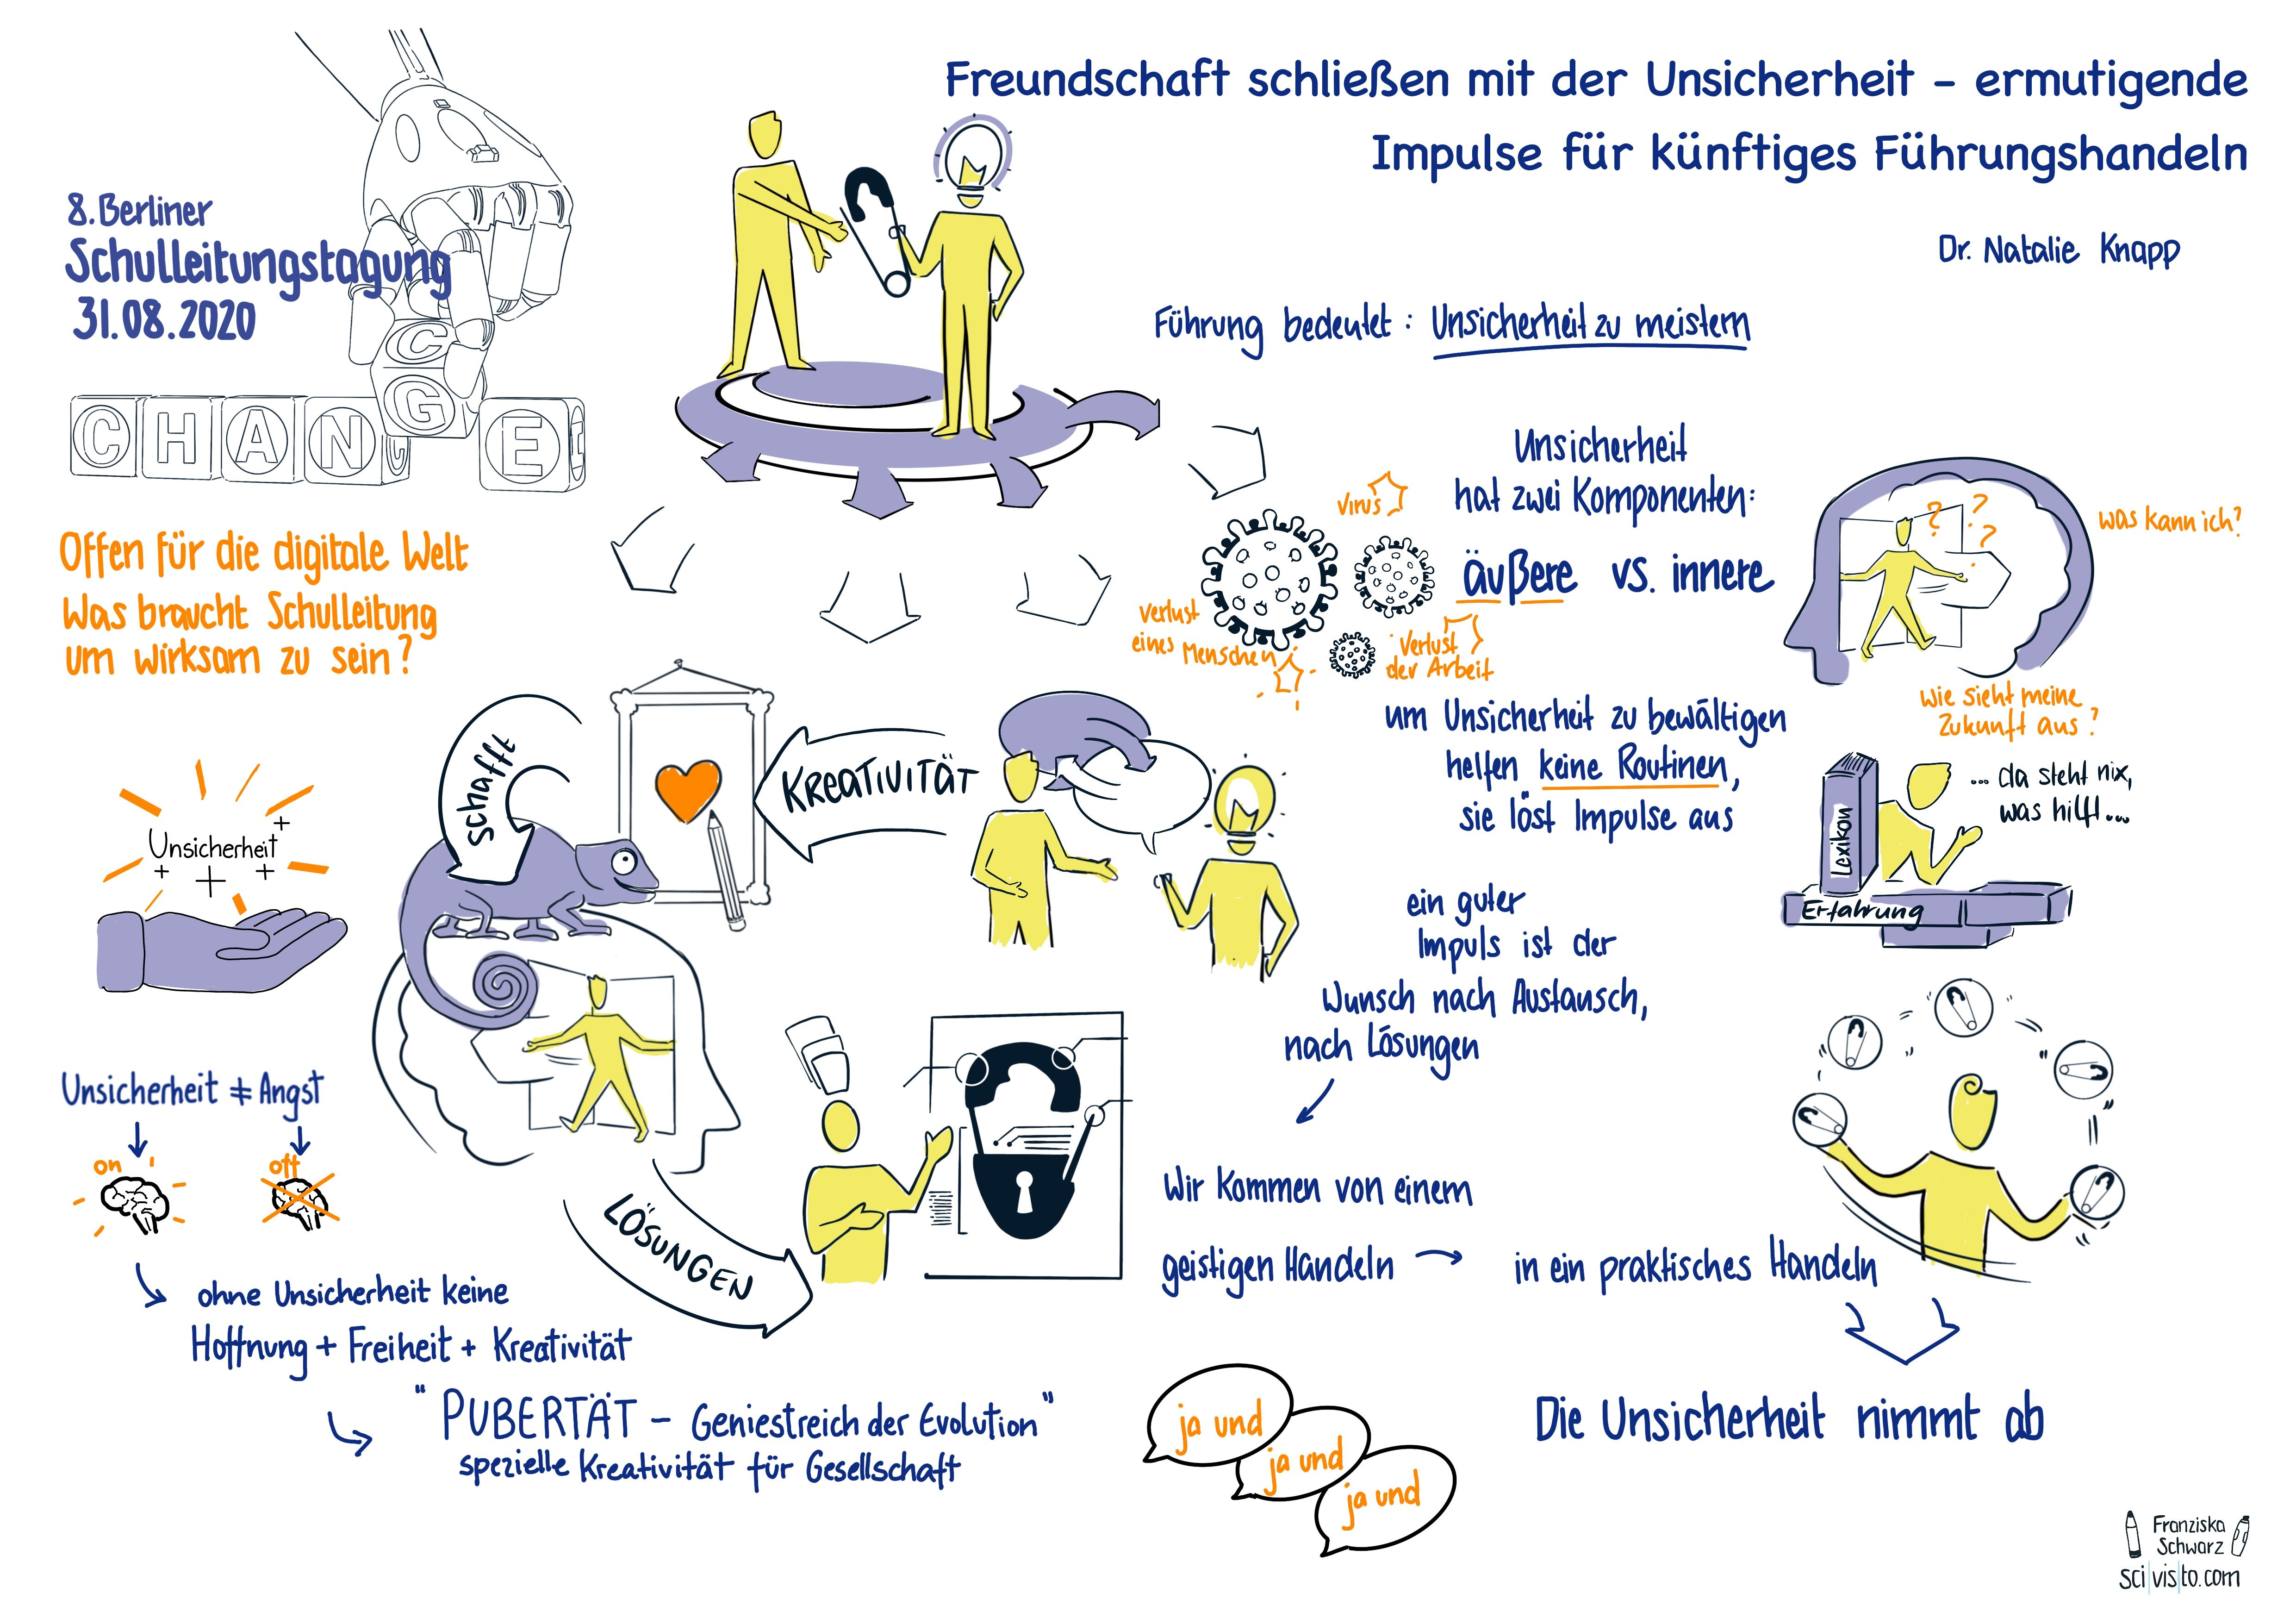 Freundschaft schließen mit der Unsicherheit – ermutigende
Impulse für künftiges Führungshandeln
Dr. Natalie Knapp
8. Berliner
Schulleitungstagung
31.08.2020
C
G
C H A N E I
Offen für die digitale Welt
Was braucht Schulleitung
um wirksam zu sein?
Führung bedeutet: Unsicherheit zu meistern
Unsicherheit
hat zwei Komponenten:
äußere vs. innere
Virus
Verlust
eines Menschen
Verlust
der Arbeit
? ? ?
was kann ich?
Wie sieht meine
Zukunft aus?
um Unsicherheit zu bewältigen
helfen keine Routinen,
sie löst Impulse aus
Lexikon
Erfahrung
... da steht nix,
was hilft...
ein guter
Impuls ist der
Wunsch nach Austausch,
nach Lösungen
KREATIVITÄT
schafft
LÖSUNGEN
Unsicherheit
Unsicherheit ≠ Angst
on
off
ohne Unsicherheit keine
Hoffnung + Freiheit + Kreativität
"PUBERTÄT – Geniestreich der Evolution"
spezielle Kreativität für Gesellschaft
Wir kommen von einem
geistigen Handeln → in ein praktisches Handeln
Die Unsicherheit nimmt ab
ja und
ja und
ja und
Franziska
Schwarz
sci|vis|to.com